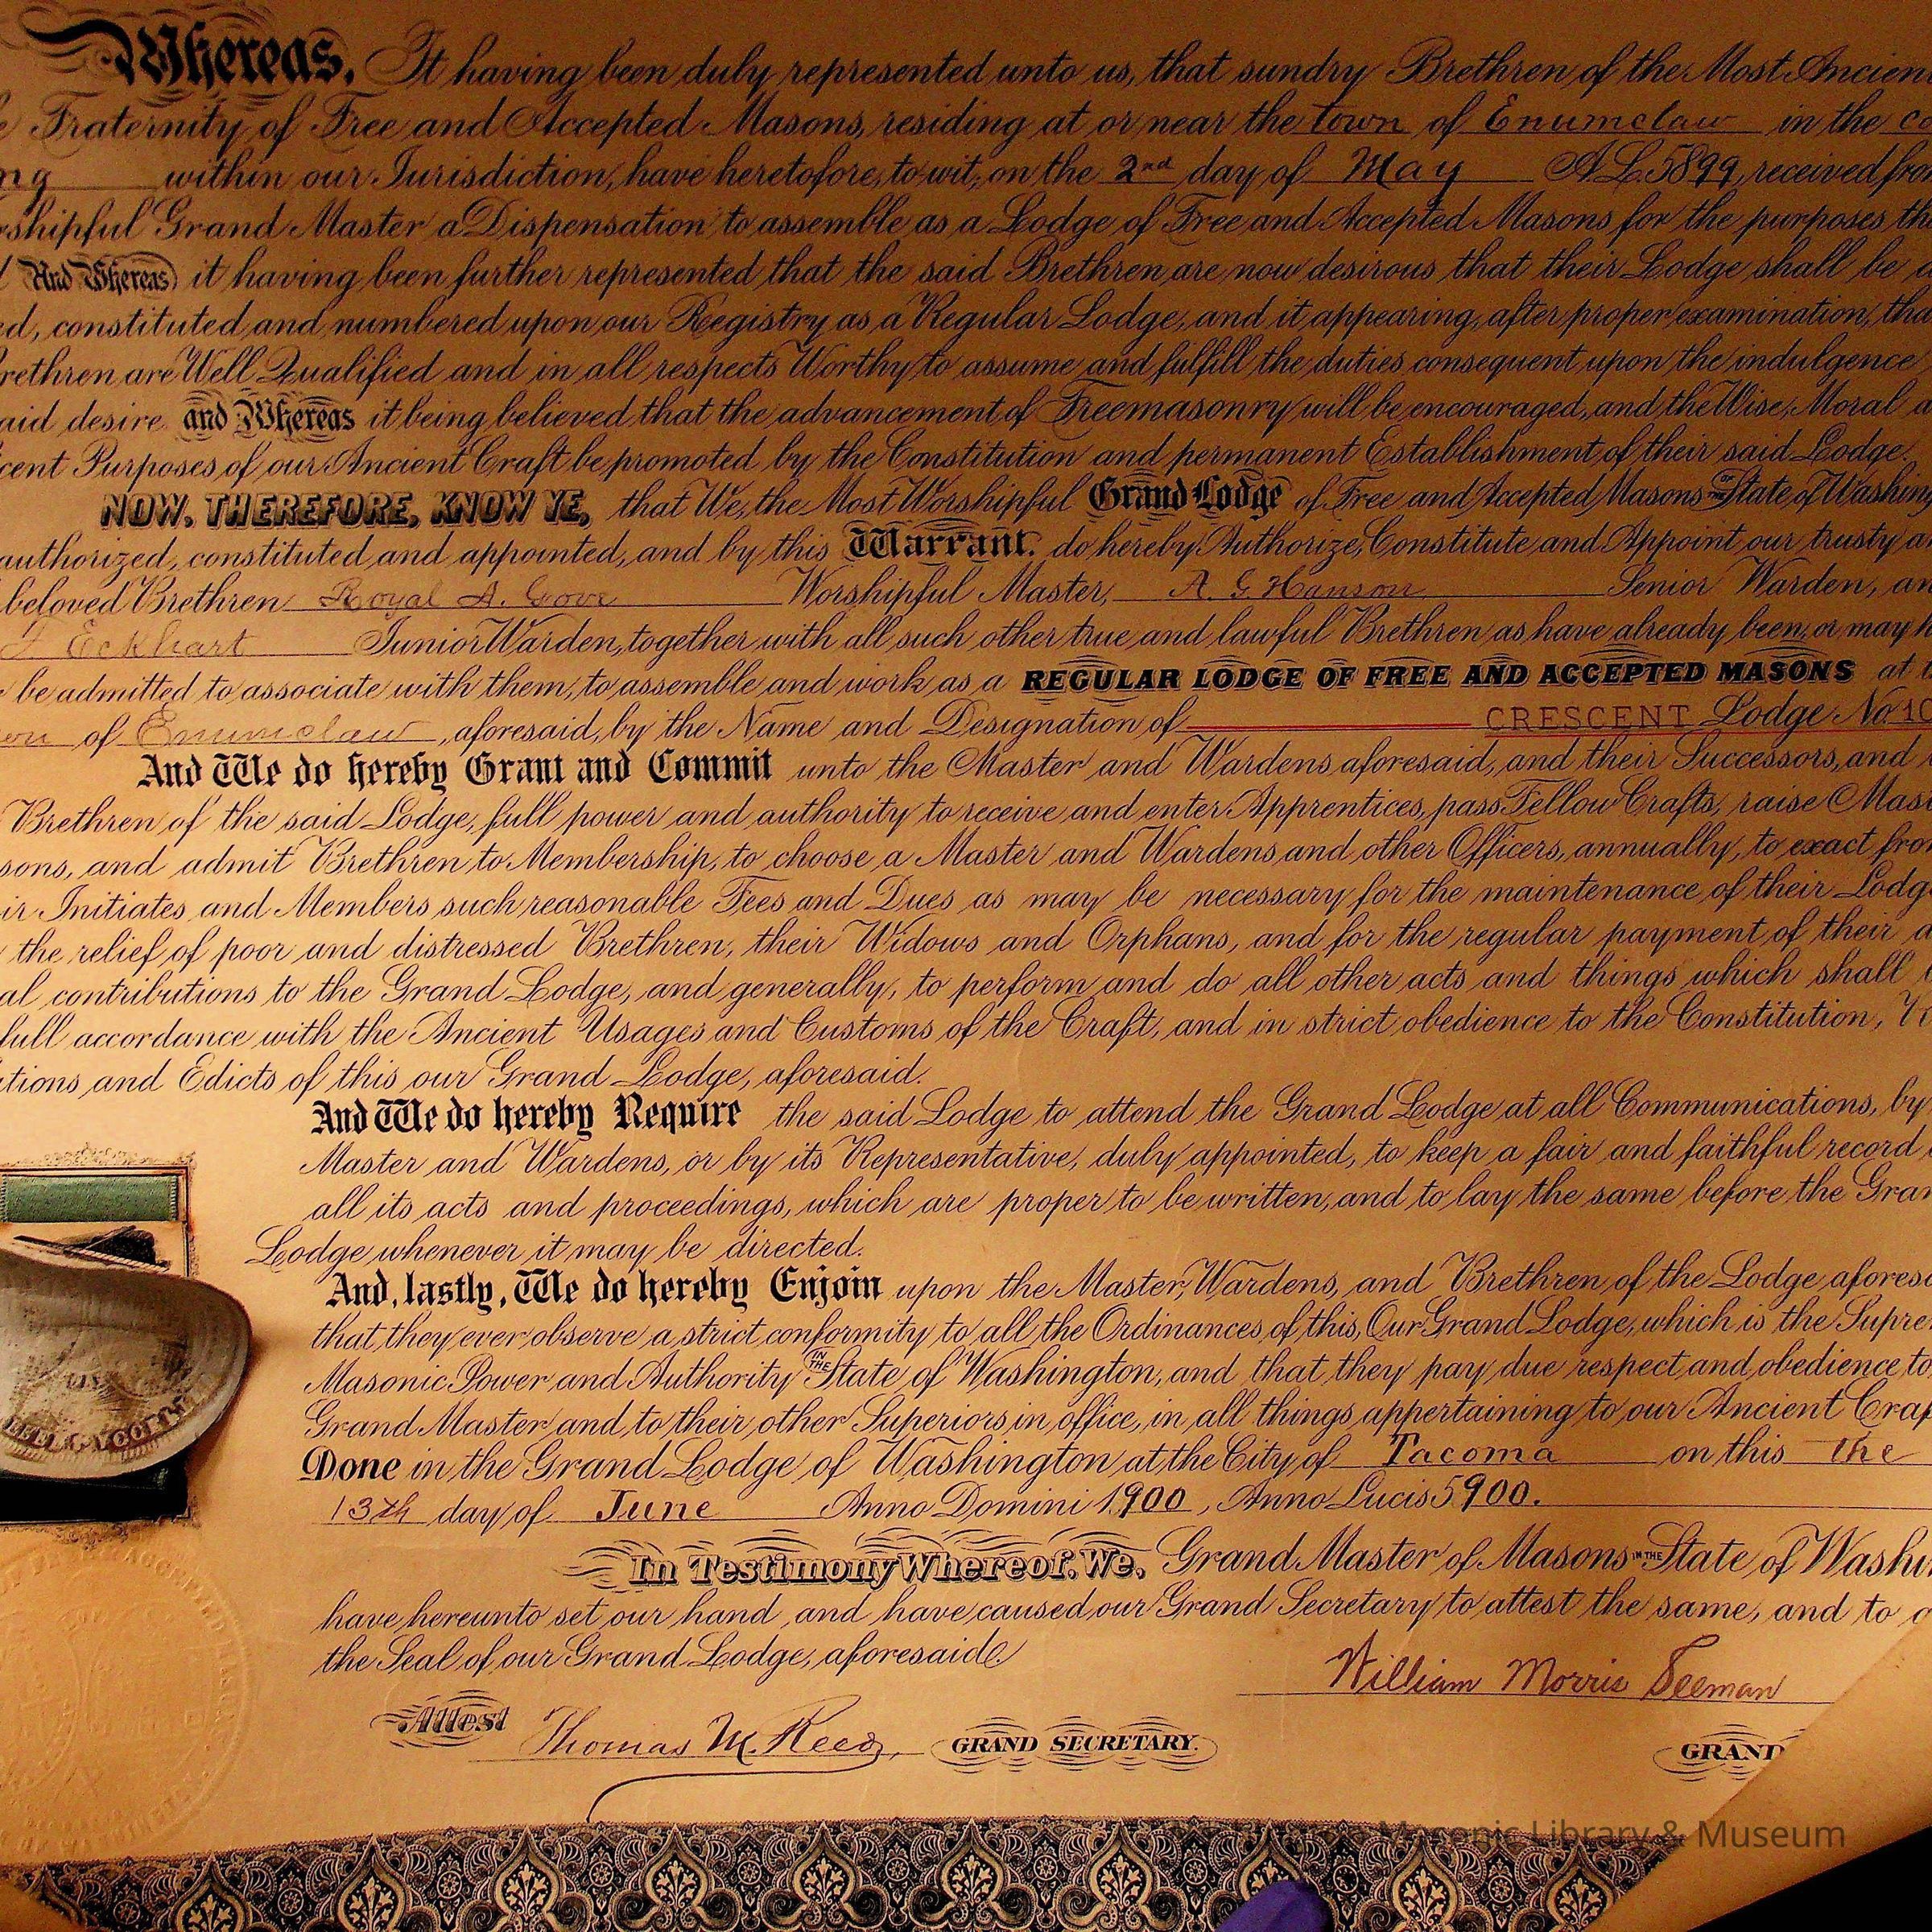 Whereas, It having been duly represented unto us, that sundry Brethren of the Most Ancien
Fraternity of Free and Accepted Masons, residing at or near the town of Enumclaw in the co
ng within our Jurisdiction, have heretofore, to wit, on the 2nd day of May A.L. 5899, received fro
rshipful Grand Master a Dispensation to assemble as a Lodge of Free and Accepted Masons for the purposes th
And Whereas it having been further represented that the said Brethren are now desirous that their Lodge shall be
ed, constituted and numbered upon our Registry as a Regular Lodge, and it appearing, after proper examination, tha
rethren are Well Qualified and in all respects Worthy to assume and fulfill the duties consequent upon the indulgence
aid desire and Whereas it being believed that the advancement of Freemasonry will be encouraged, and the Wise, Moral a
cent Purposes of our Ancient Craft be promoted by the Constitution and permanent Establishment of their said Lodge.
NOW, THEREFORE, KNOW YE, that We, the Most Worshipful Grand Lodge of Free and Accepted Masons OF THE State of Washing
authorized, constituted and appointed, and by this Warrant, do hereby Authorize, Constitute and Appoint our trusty a
beloved Brethren Royal A. Gove Worshipful Master, A. G. Hanson Senior Warden, an
Eckhart Junior Warden, together with all such other true and lawful Brethren as have already been, or may h
be admitted to associate with them, to assemble and work as a REGULAR LODGE OF FREE AND ACCEPTED MASONS at
of Enumclaw, aforesaid, by the Name and Designation of CRESCENT Lodge No. 10
And We do hereby Grant and Commit unto the Master and Wardens aforesaid, and their Successors, and
Brethren of the said Lodge, full power and authority to receive and enter Apprentices, pass Fellow Crafts, raise Mas
sons, and admit Brethren to Membership, to choose a Master and Wardens and other Officers, annually, to exact fro
ir Initiates and Members such reasonable Fees and Dues as may be necessary for the maintenance of their Lodg
the relief of poor and distressed Brethren, their Widows and Orphans, and for the regular payment of their a
al contributions to the Grand Lodge, and generally, to perform and do all other acts and things which shall
full accordance with the Ancient Usages and Customs of the Craft, and in strict obedience to the Constitution,
tions and Edicts of this our Grand Lodge, aforesaid.
And We do hereby Require the said Lodge to attend the Grand Lodge at all Communications, by
Master and Wardens, or by its Representative, duly appointed, to keep a fair and faithful record
all its acts and proceedings, which are proper to be written, and to lay the same before the Gran
Lodge whenever it may be directed.
And, lastly, We do hereby Enjoin upon the Master, Wardens, and Brethren of the Lodge aforesa
that they ever observe a strict conformity to all the Ordinances of this, Our Grand Lodge, which is the Supre
Masonic Power and Authority IN THE State of Washington, and that they pay due respect and obedience to
Grand Master and to their other Superiors in office, in all things appertaining to our Ancient Craf
Done in the Grand Lodge of Washington at the City of Tacoma on this the
13th day of June Anno Domini 1900, Anno Lucis 5900.
In Testimony Whereof, We, Grand Master of Masons IN THE State of Washi
have hereunto set our hand, and have caused our Grand Secretary to attest the same, and to
the Seal of our Grand Lodge, aforesaid.
William Morris Seeman
Attest Thomas M. Reed, GRAND SECRETARY. GRAND
Masonic Library & Museum